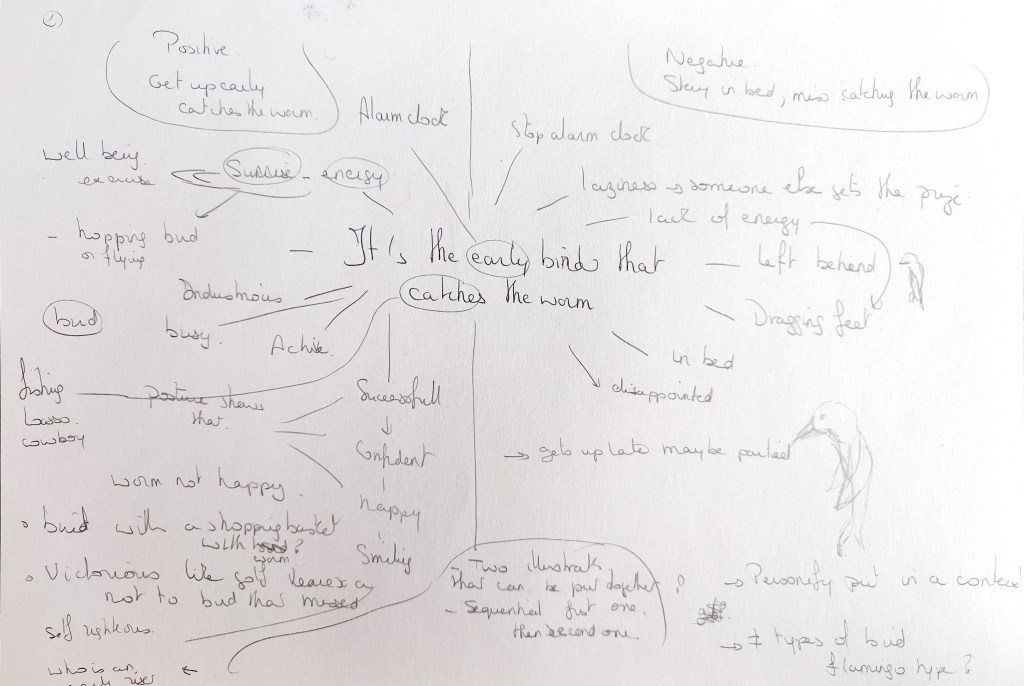 Positive
Get up early
catches the worm.
Negative
Stay in bed, miss catching the worm
Alarm clock
Stop alarm clock
well being.
exercise
Sunrise - energy
laziness → someone else gets the prize.
lack of energy
- hopping bird
or flying
- It's the early bird that
catches the worm
left behind
Dragging feet
Industrious
busy.
Active.
bird
in bed
disappointed
fishing
Lasso.
cowboy
posture shows
that.
Successfull
Confident
happy
Smiling
→ gets up late maybe
worm not happy.
• bird with a shopping basket
with worm?
• Victorious like golf
not to bird that missed
Self righteous.
who is an
- Two
that can be put together?
- Sequential first one.
then second one.
→ Personify put in a context
→ ≠ types of bird
flamingo type?